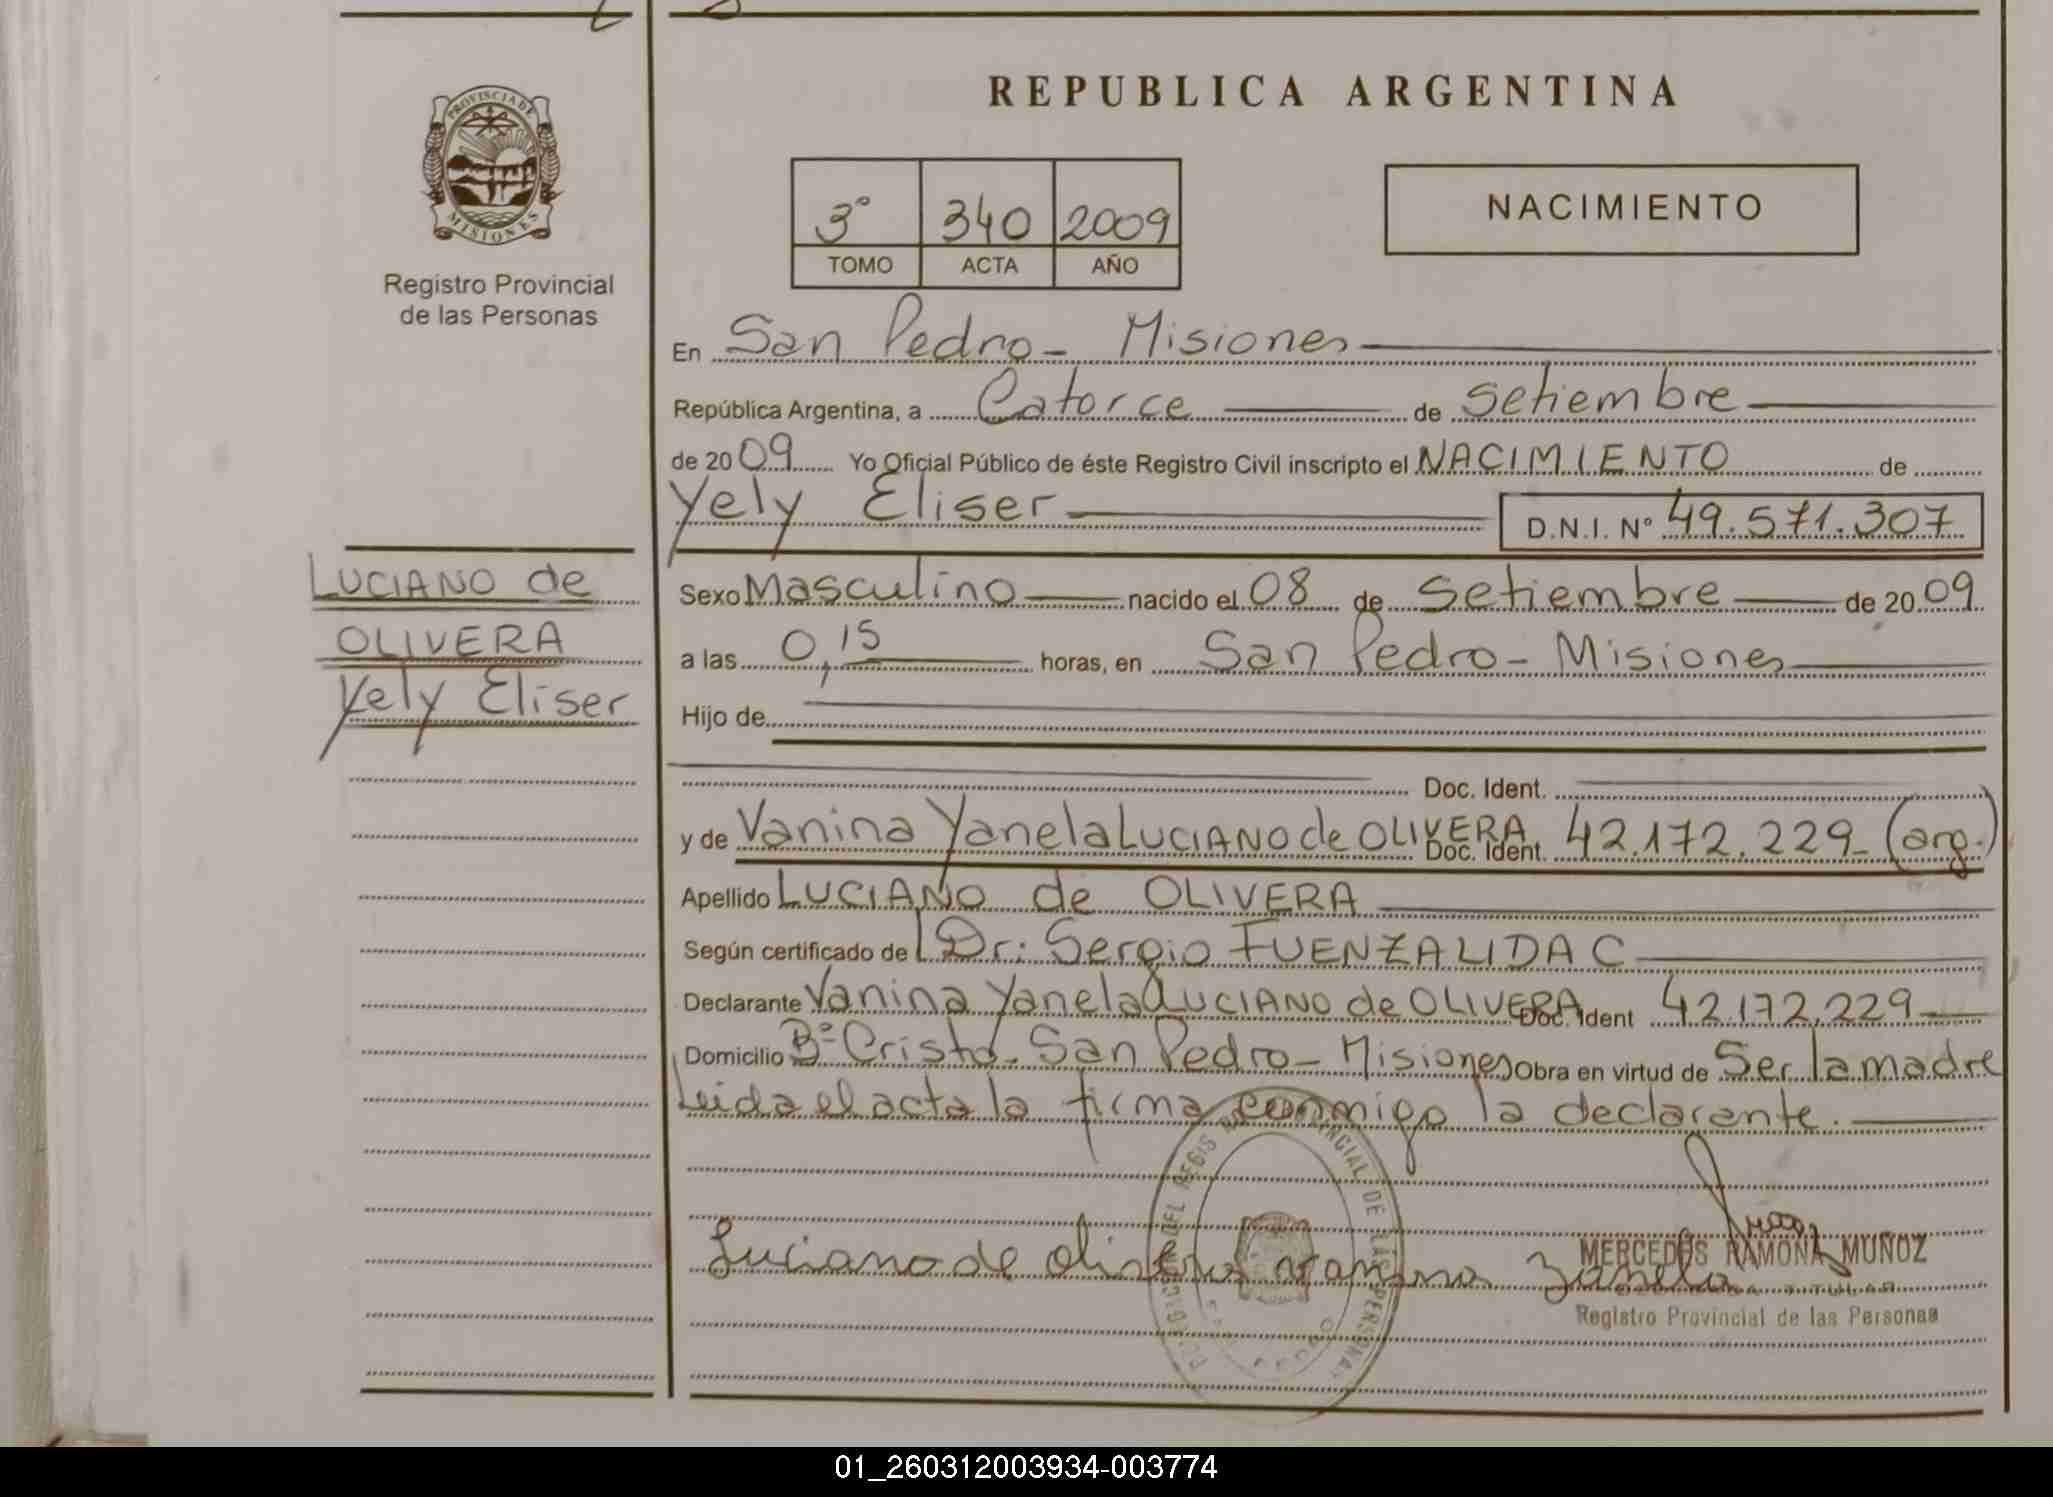 REPUBLICA ARGENTINA
PROVINCIA DE MISIONES
Registro Provincial
de las Personas
3° 340 2009
TOMO ACTA AÑO
NACIMIENTO
En San Pedro - Misiones
República Argentina, a Catorce de Setiembre
de 2009 Yo Oficial Público de éste Registro Civil inscripto el NACIMIENTO de
Yely Eliser D.N.I. N° 49.571.307
LUCIANO de
OLIVERA
Yely Eliser
Sexo Masculino nacido el 08 de Setiembre de 2009
a las 0,15 horas, en San Pedro - Misiones
Hijo de
Doc. Ident.
y de Vanina Yanela LUCIANO de OLIVERA Doc. Ident. 42.172.229 - (arg.)
Apellido LUCIANO de OLIVERA
Según certificado de Dr: Sergio FUENZALIDA C
Declarante Vanina Yanela LUCIANO de OLIVERA Doc. Ident 42.172.229
Domicilio B° Cristo - San Pedro - Misiones Obra en virtud de Ser la madre
Leida el acta la firma conmigo la declarente.
Luciano de olivera vanina
MERCEDES RAMONA MUÑOZ
TITULAR
Registro Provincial de las Personas
01_260312003934-003774